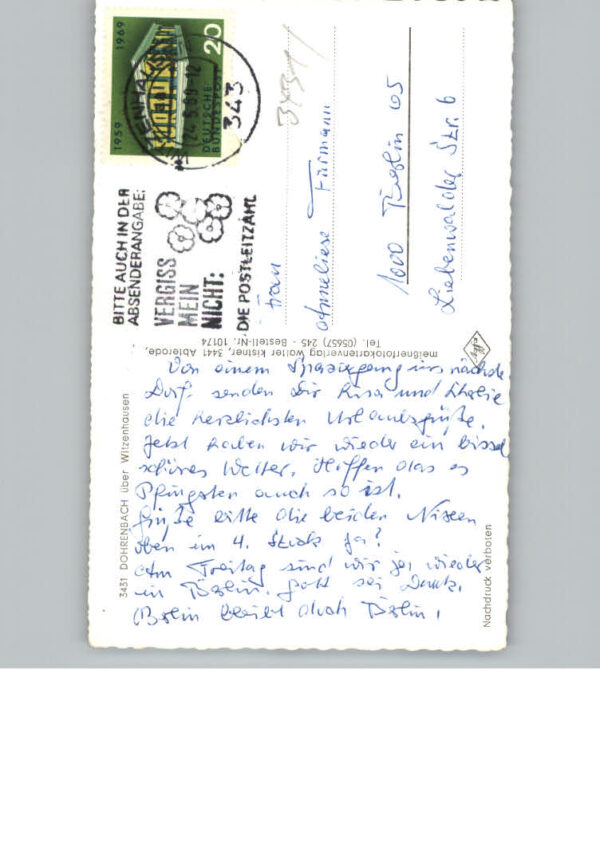 1959 1969
20
DEUTSCHE
BUNDESPOST
343
24.5.69-12
BITTE AUCH IN DER
ABSENDERANGABE:
VERGISS
MEIN
NICHT:
DIE POSTLEITZAHL
Frau
Anneliese Furmann
1000 Berlin 65
Liebenwalder Str. 6
meißnerfotokartenverlag Walter Kistner, 3441 Abterode,
Tel. (05657) 245 - Bestell-Nr. 10174
Agfa
3431 DOHRENBACH über Witzenhausen
Nachdruck verboten
Von einem Spaziergang ins nächste
Dorf senden Dir und
die herzlichsten Urlaubsgrüße.
Jetzt haben wir wieder ein bissel
schönes Wetter. Hoffen das es
Pfingsten auch so ist.
Grüße bitte die beiden
oben im 4. Stock ja?
Am Freitag sind wir ja wieder
in Berlin. Gott sei Dank.
Berlin bleibt doch Berlin!